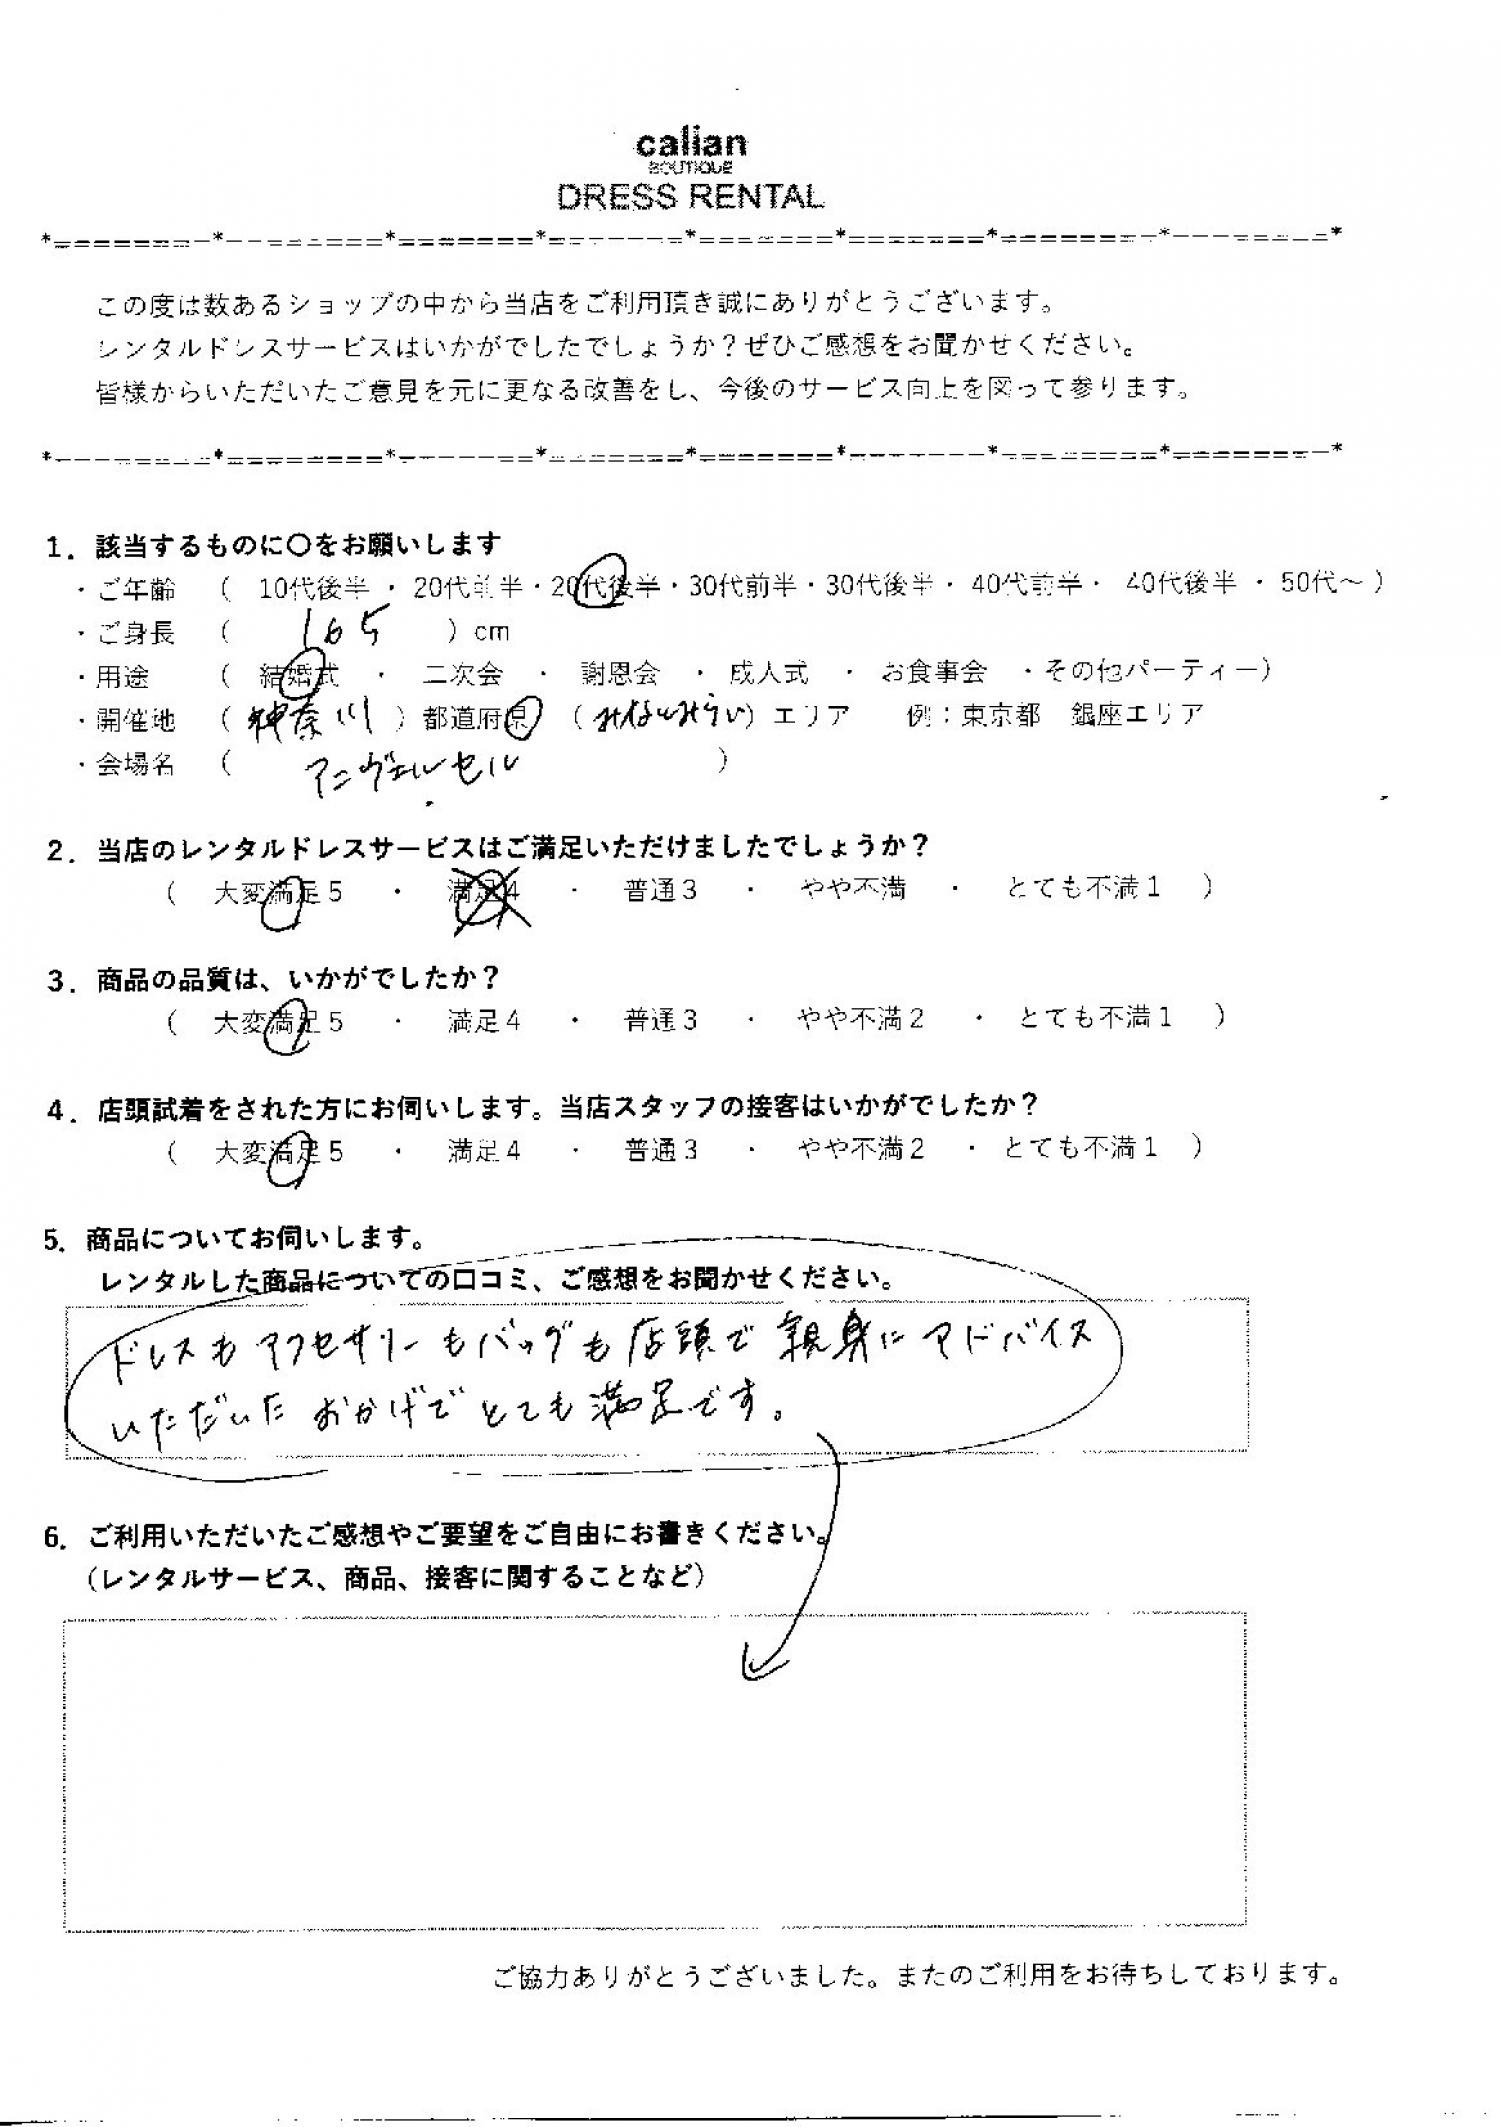 calian
BOUTIQUE
DRESS RENTAL
*=======-*--======*=======*=------=*=======*=======*=======-*----====*
この度は数あるショップの中から当店をご利用頂き誠にありがとうございます。
レンタルドレスサービスはいかがでしたでしょうか？ぜひご感想をお聞かせください。
皆様からいただいたご意見を元に更なる改善をし、今後のサービス向上を図って参ります。
*----=====*========*------==*=======*=======*-------*========*=======-*
1．該当するものに〇をお願いします
・ご年齢 （ 10代後半 ・ 20代前半・20代後半・30代前半・30代後半・ 40代前半・ 40代後半 ・ 50代～ ）
・ご身長 （ 165 ）cm
・用途 （ 結婚式 ・ 二次会 ・ 謝恩会 ・ 成人式 ・ お食事会 ・その他パーティー）
・開催地 （ 神奈川 ）都道府県 （ みなとみらい ）エリア 例：東京都 銀座エリア
・会場名 （ アニヴェルセル ）
2．当店のレンタルドレスサービスはご満足いただけましたでしょうか？
（ 大変満足5 ・ 満足4 ・ 普通3 ・ やや不満 ・ とても不満1 ）
3．商品の品質は、いかがでしたか？
（ 大変満足5 ・ 満足4 ・ 普通3 ・ やや不満2 ・ とても不満1 ）
4．店頭試着をされた方にお伺いします。当店スタッフの接客はいかがでしたか？
（ 大変満足5 ・ 満足4 ・ 普通3 ・ やや不満2 ・ とても不満1 ）
5．商品についてお伺いします。
レンタルした商品についての口コミ、ご感想をお聞かせください。
ドレスもアクセサリーもバッグも店頭で親身にアドバイス
いただいたおかげでとても満足です。
6．ご利用いただいたご感想やご要望をご自由にお書きください。
（レンタルサービス、商品、接客に関することなど）
ご協力ありがとうございました。またのご利用をお待ちしております。